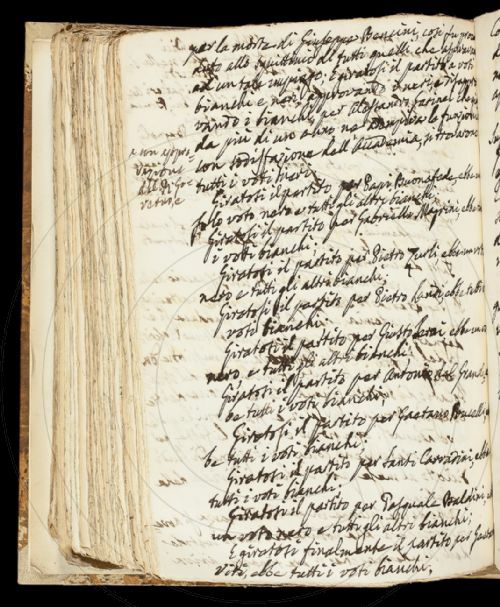 per la morte di Giuseppe Bencini, così fu proce
duto allo squittinio di tutti quelli che aspiravano
ad un tale impiego. E giratosi il partito a voti
bianchi e neri, approvando i neri e disappro
vando i bianchi, per Alessandro
da più di uno anno ne la funzione
con sodisfazione dell'Accademia, si trovarono
tutti i voti neri.
e un appro
vazione
del di Go
vetuse
Giratosi il partito per Papi Buonafede, ebbe un
solo voto nero e tutti gli altri bianchi.
Giratosi il partito per Gabriello Magrini, ebbe
i voti bianchi.
Giratosi il partito per Pietro Zurli ebbe un voto
nero e tutti gli altri bianchi.
Giratosi il partito per Pietro Landi, ebbe tutti
voti bianchi.
Giratosi il partito per ebbe un voto
nero e tutti gli altri bianchi.
Giratosi il partito per Antonio del Grande, eb
be tutti i voti bianchi.
Giratosi il partito per Gaetano
be tutti i voti bianchi.
Giratosi il partito per Santi Corradini, ebbe
tutti i voti bianchi.
Giratosi il partito per Pasquale Baldini
un voto nero e tutti gli altri bianchi.
E giratosi finalmente il partito per
viti, ebbe tutti i voti bianchi.